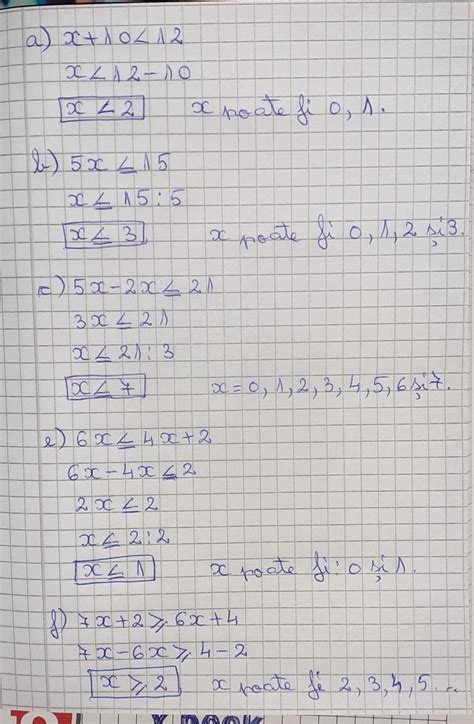 a) x+10<12
x<12-10
x<2 x poate fi 0, 1.
b) 5x≤15
x≤15:5
x≤3 x poate fi 0, 1, 2 și 3.
c) 5x-2x≤21
3x≤21
x≤21:3
x≤7 x=0, 1, 2, 3, 4, 5, 6 și 7.
e) 6x≤4x+2
6x-4x≤2
2x≤2
x≤2:2
x≤1 x poate fi: 0 și 1.
f) 7x+2≥6x+4
7x-6x≥4-2
x≥2 x poate fi 2, 3, 4, 5...